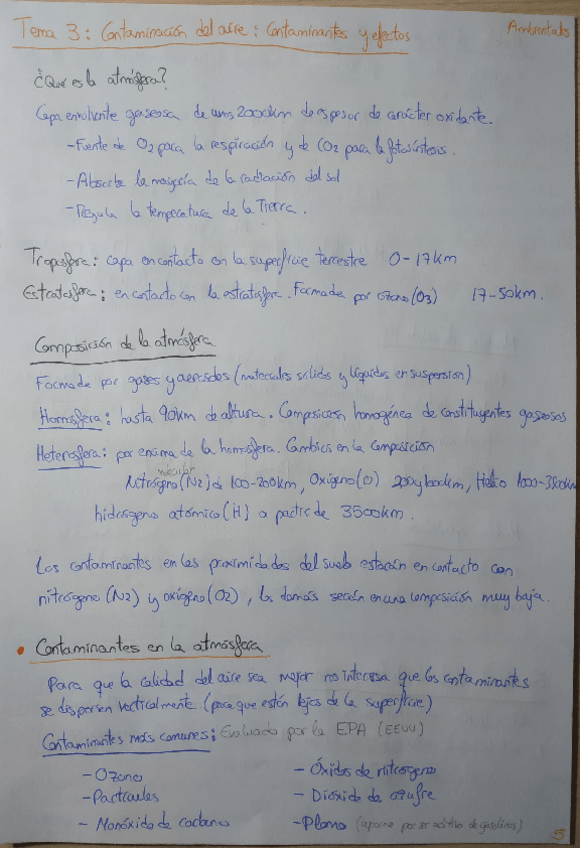 Tema 3: Contaminación del aire: Contaminantes y efectos
Ambientales
¿Que es la atmósfera?
Capa envolvente gaseosa de unos 2000km de espesor de carácter oxidante.
-Fuente de O2 para la respiración y de CO2 para la fotosíntesis.
-Absorbe la mayoría de la radiación del sol
-Regula la temperatura de la Tierra.
Troposfera: capa en contacto con la superficie terrestre 0-17km
Estratosfera: en contacto con la estratosfera. Formada por ozono (O3) 17-50km.
Composición de la atmósfera
Formada por gases y aerosoles (materiales sólidos y líquidos en suspensión)
Homosfera: hasta 90km de altura. Composición homogénea de constituyentes gaseosos
Heterosfera: por encima de la homosfera. Cambios en la composición
molecular
Nitrógeno (N2) de 100-200km, Oxígeno (O) 200 y 1000km, Helio 1000-3500km
hidrógeno atómico (H) a partir de 3500km.
Los contaminantes en las proximidades del suelo estarán en contacto con
nitrógeno (N2) y oxígeno (O2), los demás serán en una composición muy baja.
• Contaminantes en la atmósfera
Para que la calidad del aire sea mejor nos interesa que los contaminantes
se dispersen verticalmente (para que estén lejos de la superficie)
Contaminantes más comunes: Evaluado por la EPA (EEUU)
-Ozono
-Óxidos de nitrógeno
-Partículas
-Dióxido de azufre
- Monóxido de carbono
-Plomo (aparece por ser aditivo de gasolinas)
5